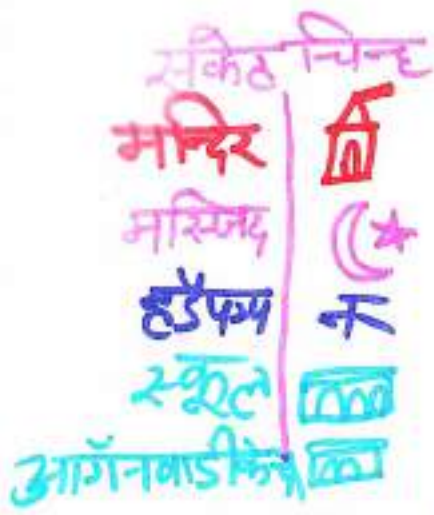 संकेत चिन्ह
मन्दिर
मस्जिद
हडैपम्प न
स्कूल
आगॅनवाडी केन्द्र